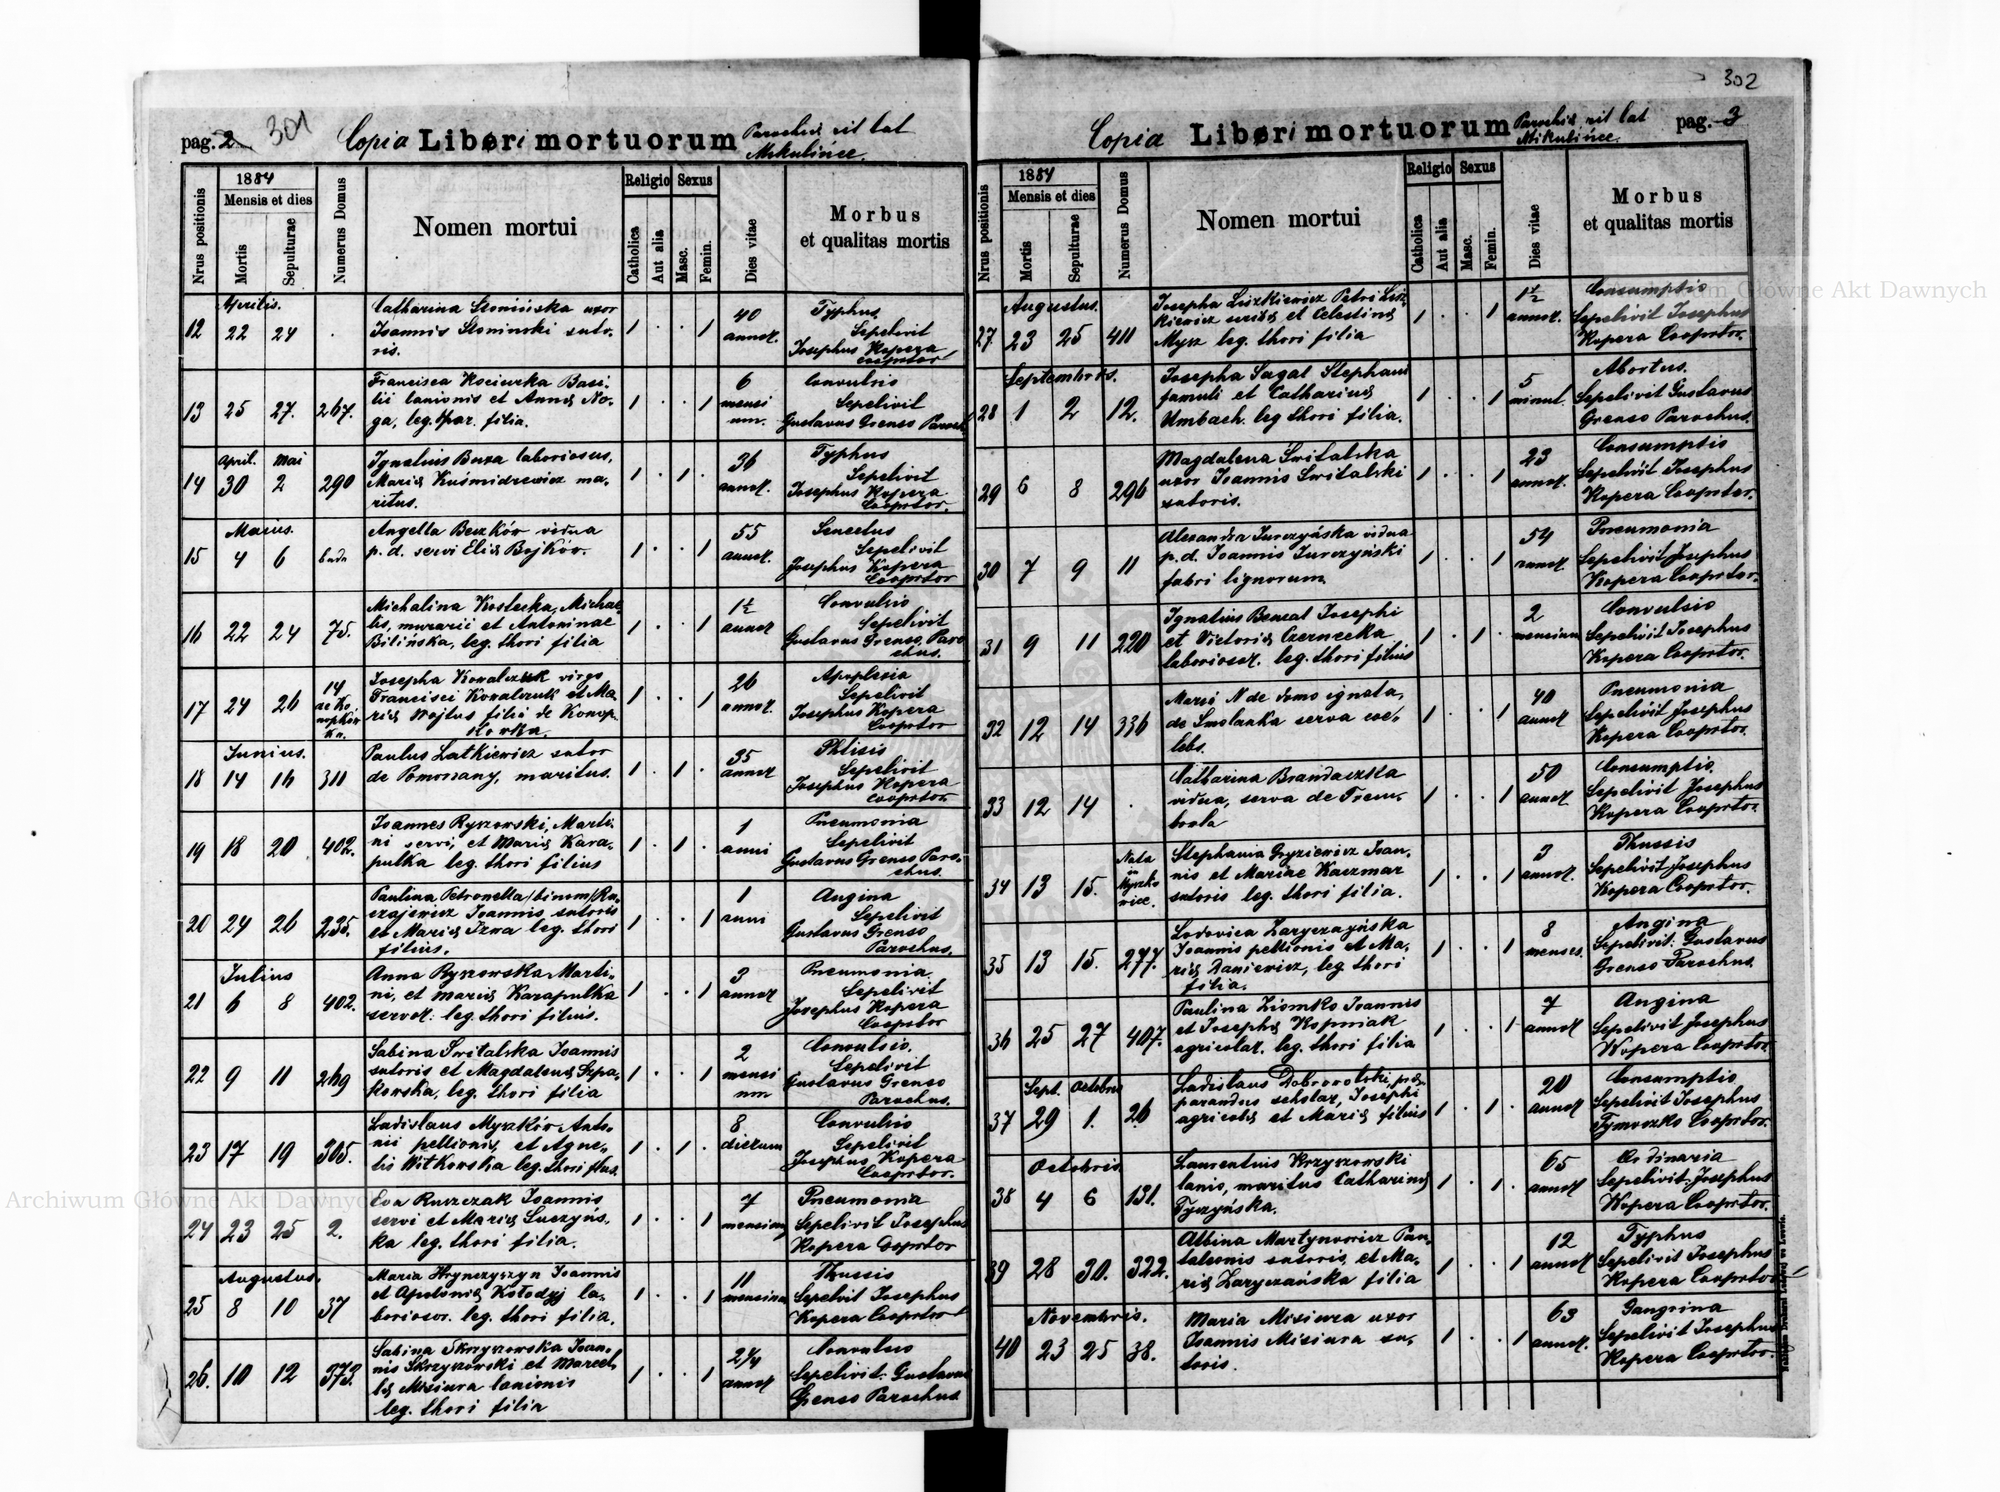 302
pag. 2 301 Copia Liberi mortuorum Parochiæ rit lat
Mikulińce.
Nrus positionis
1884
Mensis et dies
Mortis
Sepulturae
Numerus Domus
Nomen mortui
Religio
Catholica
Aut alia
Sexus
Masc.
Femin.
Dies vitae
Morbus
et qualitas mortis
Aprilis.
12 22 24 . Catharina Słomińska uxor
Joannis Słominski suto-
ris.
1 . . 1 40
annor.
Typhus
Sepelivit
Josephus Kopera
Cooprtor
13 25 27. 267. Francisca Kociurka Basi-
lii lanionis et Annæ No-
ga, leg. thor. filia.
1 . . 1 6
mensi
um.
Convulsio
Sepelivit
Gustavus Grenso Paroch
April. Mai
14 30 2 290 Ignatius Buza laboriosus,
Mariæ Kuśmidrewicz ma-
ritus.
1 . 1 . 36
annor.
Typhus
Sepelivit
Josephus Kopera
Cooprtor.
Maius.
15 4 6 Angella Beszków vidua
p. d. servi Eliæ Bojków.
1 . . 1 55
annor.
Senectus
Sepelivit
Josephus Kopera
Cooprtor
16 22 24 75. Michalina Kostecka, Michae-
lis, murarii et Antoninae
Bilińska, leg. thori filia
1 . . 1 1½
annor
Convulsio
Sepelivit
Gustavus Grenso, Paro
chus.
17 24 26 14
de Ko
nopków
ka.
Josepha Kowalczuk virgo
Francisci Kowalczuk et Ma-
riæ Wojtus filia de Konop-
kówka.
1 . . 1 26
annor.
Apoplexia
Sepelivit
Josephus Kopera
Cooprtor
Junius.
18 14 16 311 Paulus Latkiewicz sutor
de Pomorzany, maritus.
1 . 1 . 35
annor
Phtisis
Sepelivit
Josephus Kopera
Cooprtor
19 18 20 402. Joannes Ryszowski, Marti-
ni servi, et Mariæ Kara-
pulka leg. thori filius
1 . 1 . 1
anni
Pneumonia
Sepelivit
Gustavus Grenso Paro-
chus.
20 24 26 235. Paulina Petronella /binom/ Ra-
czajewicz Joannis sutoris
et Mariæ Izwa leg. thori
filius.
1 . . 1 1
anni
Angina
Sepelivit
Gustavus Grenso
Parochus.
Julius
21 6 8 402. Anna Ryszowska Marti-
ni, et Mariæ Karapulka
servor. leg. thori filius.
1 . . 1 3
annor
Pneumonia.
Sepelivit
Josephus Kopera
Cooprtor
22 9 11 269 Sabina Świtalska Joannis
sutoris et Magdalenæ Szpa-
kowska, leg. thori filia
1 . . 1 2
mensi
um
Convulsio.
Sepelivit
Gustavus Grenso
Parochus.
23 17 19 305. Ladislaus Myszków Anto-
nii pellionis, et Agne-
tis Witkowska leg. thori filius.
1 . 1 . 8
dierum
Convulsio
Sepelivit
Josephus Kopera
Cooprtor.
24 23 25 2. Eva Ruszczak Joannis
servi et Mariæ Luczyńs-
ka leg. thori filia.
1 . . 1 7
mensium
Pneumonia
Sepelivit Josephus
Kopera Cooprtor
Augustus.
25 8 10 37 Maria Hrynczyszyn Joannis
et Apoloniæ Kołodzij la-
boriosor. leg. thori filia.
1 . . 1 11
mensium
Thussis
Sepelivit Josephus
Kopera Cooprtor
26. 10 12 373. Sabina Skrzyszowska Joan-
nis Skrzyszowski et Marcel-
læ Misiura lanionis
leg. thori filia
1 . . 1 2¼
annor
Convulsio
Sepelivit Gustavus
Grenso Parochus
Copia Liberi mortuorum Parochiæ rit lat pag. 3
Mikulińce.
Nrus positionis
1884
Mensis et dies
Mortis
Sepulturae
Numerus Domus
Nomen mortui
Religio
Catholica
Aut alia
Sexus
Masc.
Femin.
Dies vitae
Morbus
et qualitas mortis
Augustus.
27 23 25 411 Josepha Liszkiewicz Petri Lisz-
kiewicz scribæ et Celestinæ
Mysz leg. thori filia
1 . . 1 1½
annor.
Consumptio
Sepelivit Josephus
Kopera Cooprtor.
Septembris.
28 1 2 12. Josepha Sagat Stephani
famuli et Catharinæ
Umbach. leg thori filia.
1 . . 1 5
minut.
Abortus.
Sepelivit Gustavus
Grenso Parochus.
29 6 8 296 Magdalena Świtalska
uxor Joannis Switalski
sutoris.
1 . . 1 23
annor.
Consumptio
Sepelivit Josephus
Kopera Cooprtor.
30 7 9 11 Alexandra Jurczyńska vidua
p. d. Joannis Jurczyński
fabri lignorum
1 . . 1 54
annor.
Pneumonia
Sepelivit Josephus
Kopera Cooprtor.
31 9 11 220 Ignatius Benzal Josephi
et Victoriæ Czernecka
laboriosor. leg. thori filius
1 . 1 . 2
mensium
Convulsio
Sepelivit Josephus
Kopera Cooprtor.
32 12 14 336 Maria N de domo ignota,
de Smolanka serva coe-
lebs.
1 . . 1 40
annor
Pneumonia
Sepelivit Josephus
Kopera Cooprtor.
33 12 14 . Catharina Brandaczska
vidua, serva de Trem-
bowla
1 . . 1 50
annor
Consumptio.
Sepelivit Josephus
Kopera Cooprtor.
34 13 15. Nata
in
Myszko
wice.
Stephania Gryziewicz Joan-
nis et Mariae Kaczmar
sutoris leg. thori filia.
1 . . 1 3
annor.
Thussis
Sepelivit Josephus
Kopera Cooprtor.
35 13 15. 277. Lodovica Zaryczayńska
Joannis pellionis et Ma-
riæ Daniewicz, leg thori
filia.
1 . . 1 8
menses.
Angina
Sepelivit: Gustavus
Grenso Parochus.
36 25 27 407. Paulina Ziomko Joannis
et Josephæ Kopniak
agricolar. leg. thori filia
1 . . 1 7
annor
Angina
Sepelivit Josephus
Kopera Cooprtor
Sept. Octobris
37 29 1. 26 Ladislaus Dobrowolski, præ-
parandus scholar, Josephi
agricolæ et Mariæ filius
1 . 1 . 20
annor
Consumptio
Sepelivit Josephus
Tymoczko Cooprtor.
Octobris
38 4 6 131. Laurentius Krzyszowski
lanio, maritus Catharinæ
Tyczyńska.
1 . 1 . 65
annor
Ordinaria
Sepelivit Josephus
Kopera Cooprtor.
39 28 30. 322. Albina Martynowicz Pan-
taleonis sutoris, et Ma-
riæ Zaryczańska filia
1 . . 1 12
annor
Typhus
Sepelivit Josephus
Kopera Cooprtor
Novembris.
40 23 25 38. Maria Misiura uxor
Joannis Misiura su-
toris.
1 . . 1 63
annor.
Gangrina
Sepelivit Josephus
Kopera Cooprtor.
Archiwum Główne Akt Dawnych
Archiwum Główne Akt Dawnych